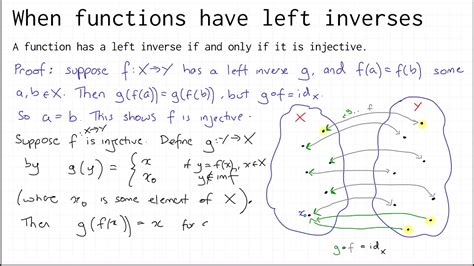 When functions have left inverses
A function has a left inverse if and only if it is injective.
Proof: suppose f: X→Y has a left inverse g, and f(a) = f(b) some
a, b ∈ X. Then g(f(a)) = g(f(b)), but g∘f = id_X.
So a = b. This shows f is injective.
Suppose f: X→Y is injective. Define g: Y→X
by g(y) = { x if y = f(x), x ∈ X
x₀ y ∉ im f
(where x₀ is some element of X).
Then g(f(x)) = x for
X
g
f
Y
x₀
g∘f = id_X